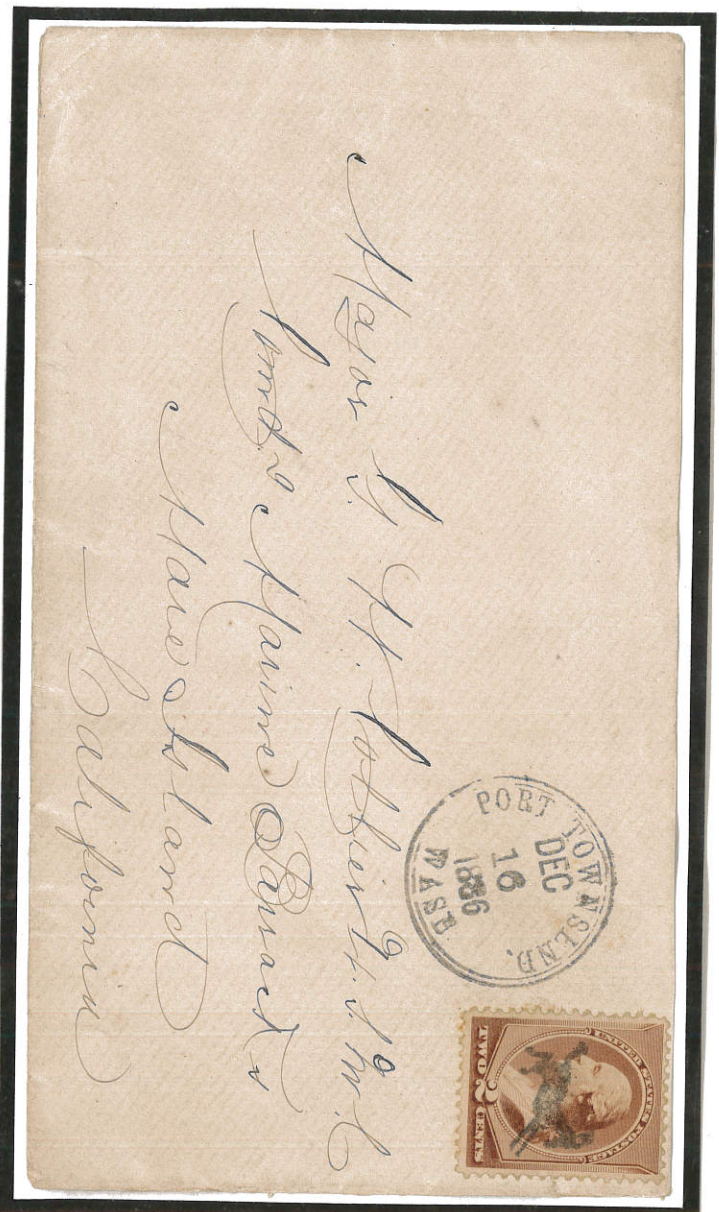 Major G. W. Collier U.S.M.C
Comd'g Marine Barracks
Mare Island
California
PORT TOWNSEND, WASH
DEC
16
1886
UNITED STATES POSTAGE
TWO 2 CENTS